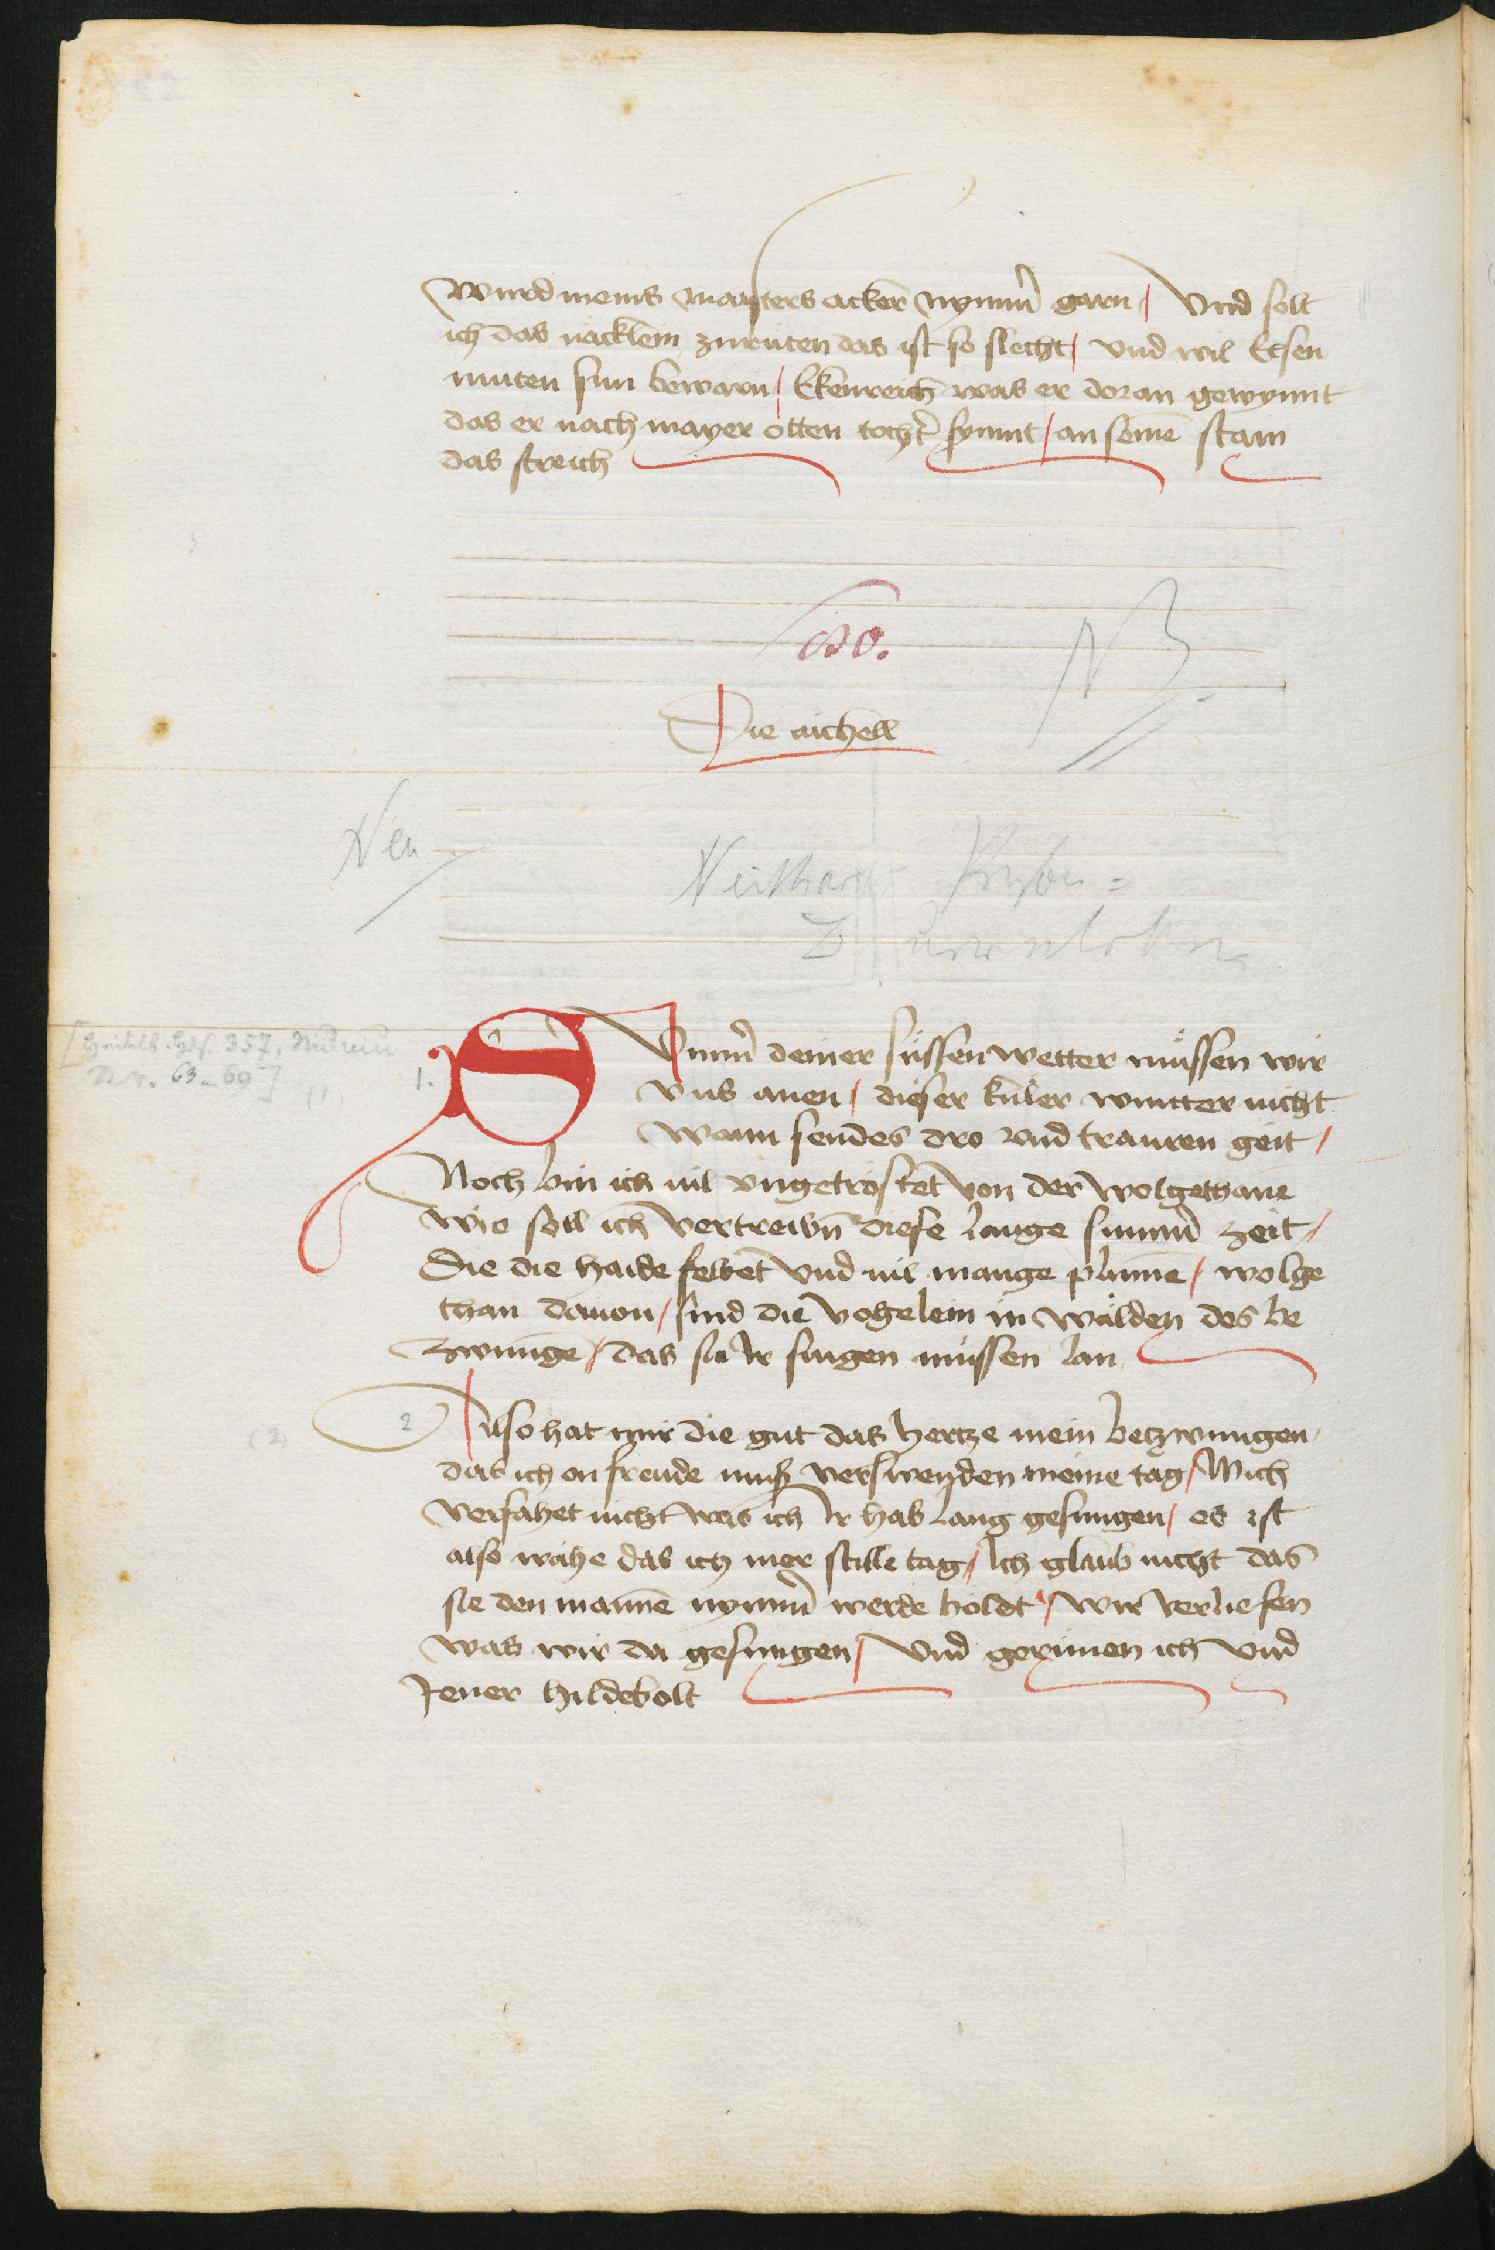 wurd meins maysters acker nymm̄ garn / Vnd solt
ich das näcklein zurüten das ist so slecht / vnd wil Etsen
muten sun bewarn / Ekenreich was er doran gewynnt
das er nach mayer otten tocht̄ synnt / an seinē stam
das streich
Die aichell
Neu
Neithart
[Heidelb. Hds. 357,
Nr. 63-69] (1)
1. SVmm̄ deiner süssen wetter müssen wir
vns anen / dieser küler wintter nicht
wann sendes dro vnd trauren geit /
Noch bin ich vil vngetröstet von der wolgethane
wie soll ich vertreibn̄ diese lange summ̄ zeit /
Die die haide felbet vnd vil mange plumē / wolge
than dauon / sind die vogelein in wälden des be
zwungē / das sie Ir singen müssen lan
(2) 2 Also hat mir die gut das hertze mein betzwungen
das ich on freude muß versweyden meine tag / Mich
verfahet nicht was ich Ir hab lang gesungen / es ist
also wähe das ich mer stille tag / Ich glaub nicht das
sie den mannē nymm̄ werde holdt / wir verliesen
was wir da gesungen / Vnd gerünen ich vnd
Jener hildebolt